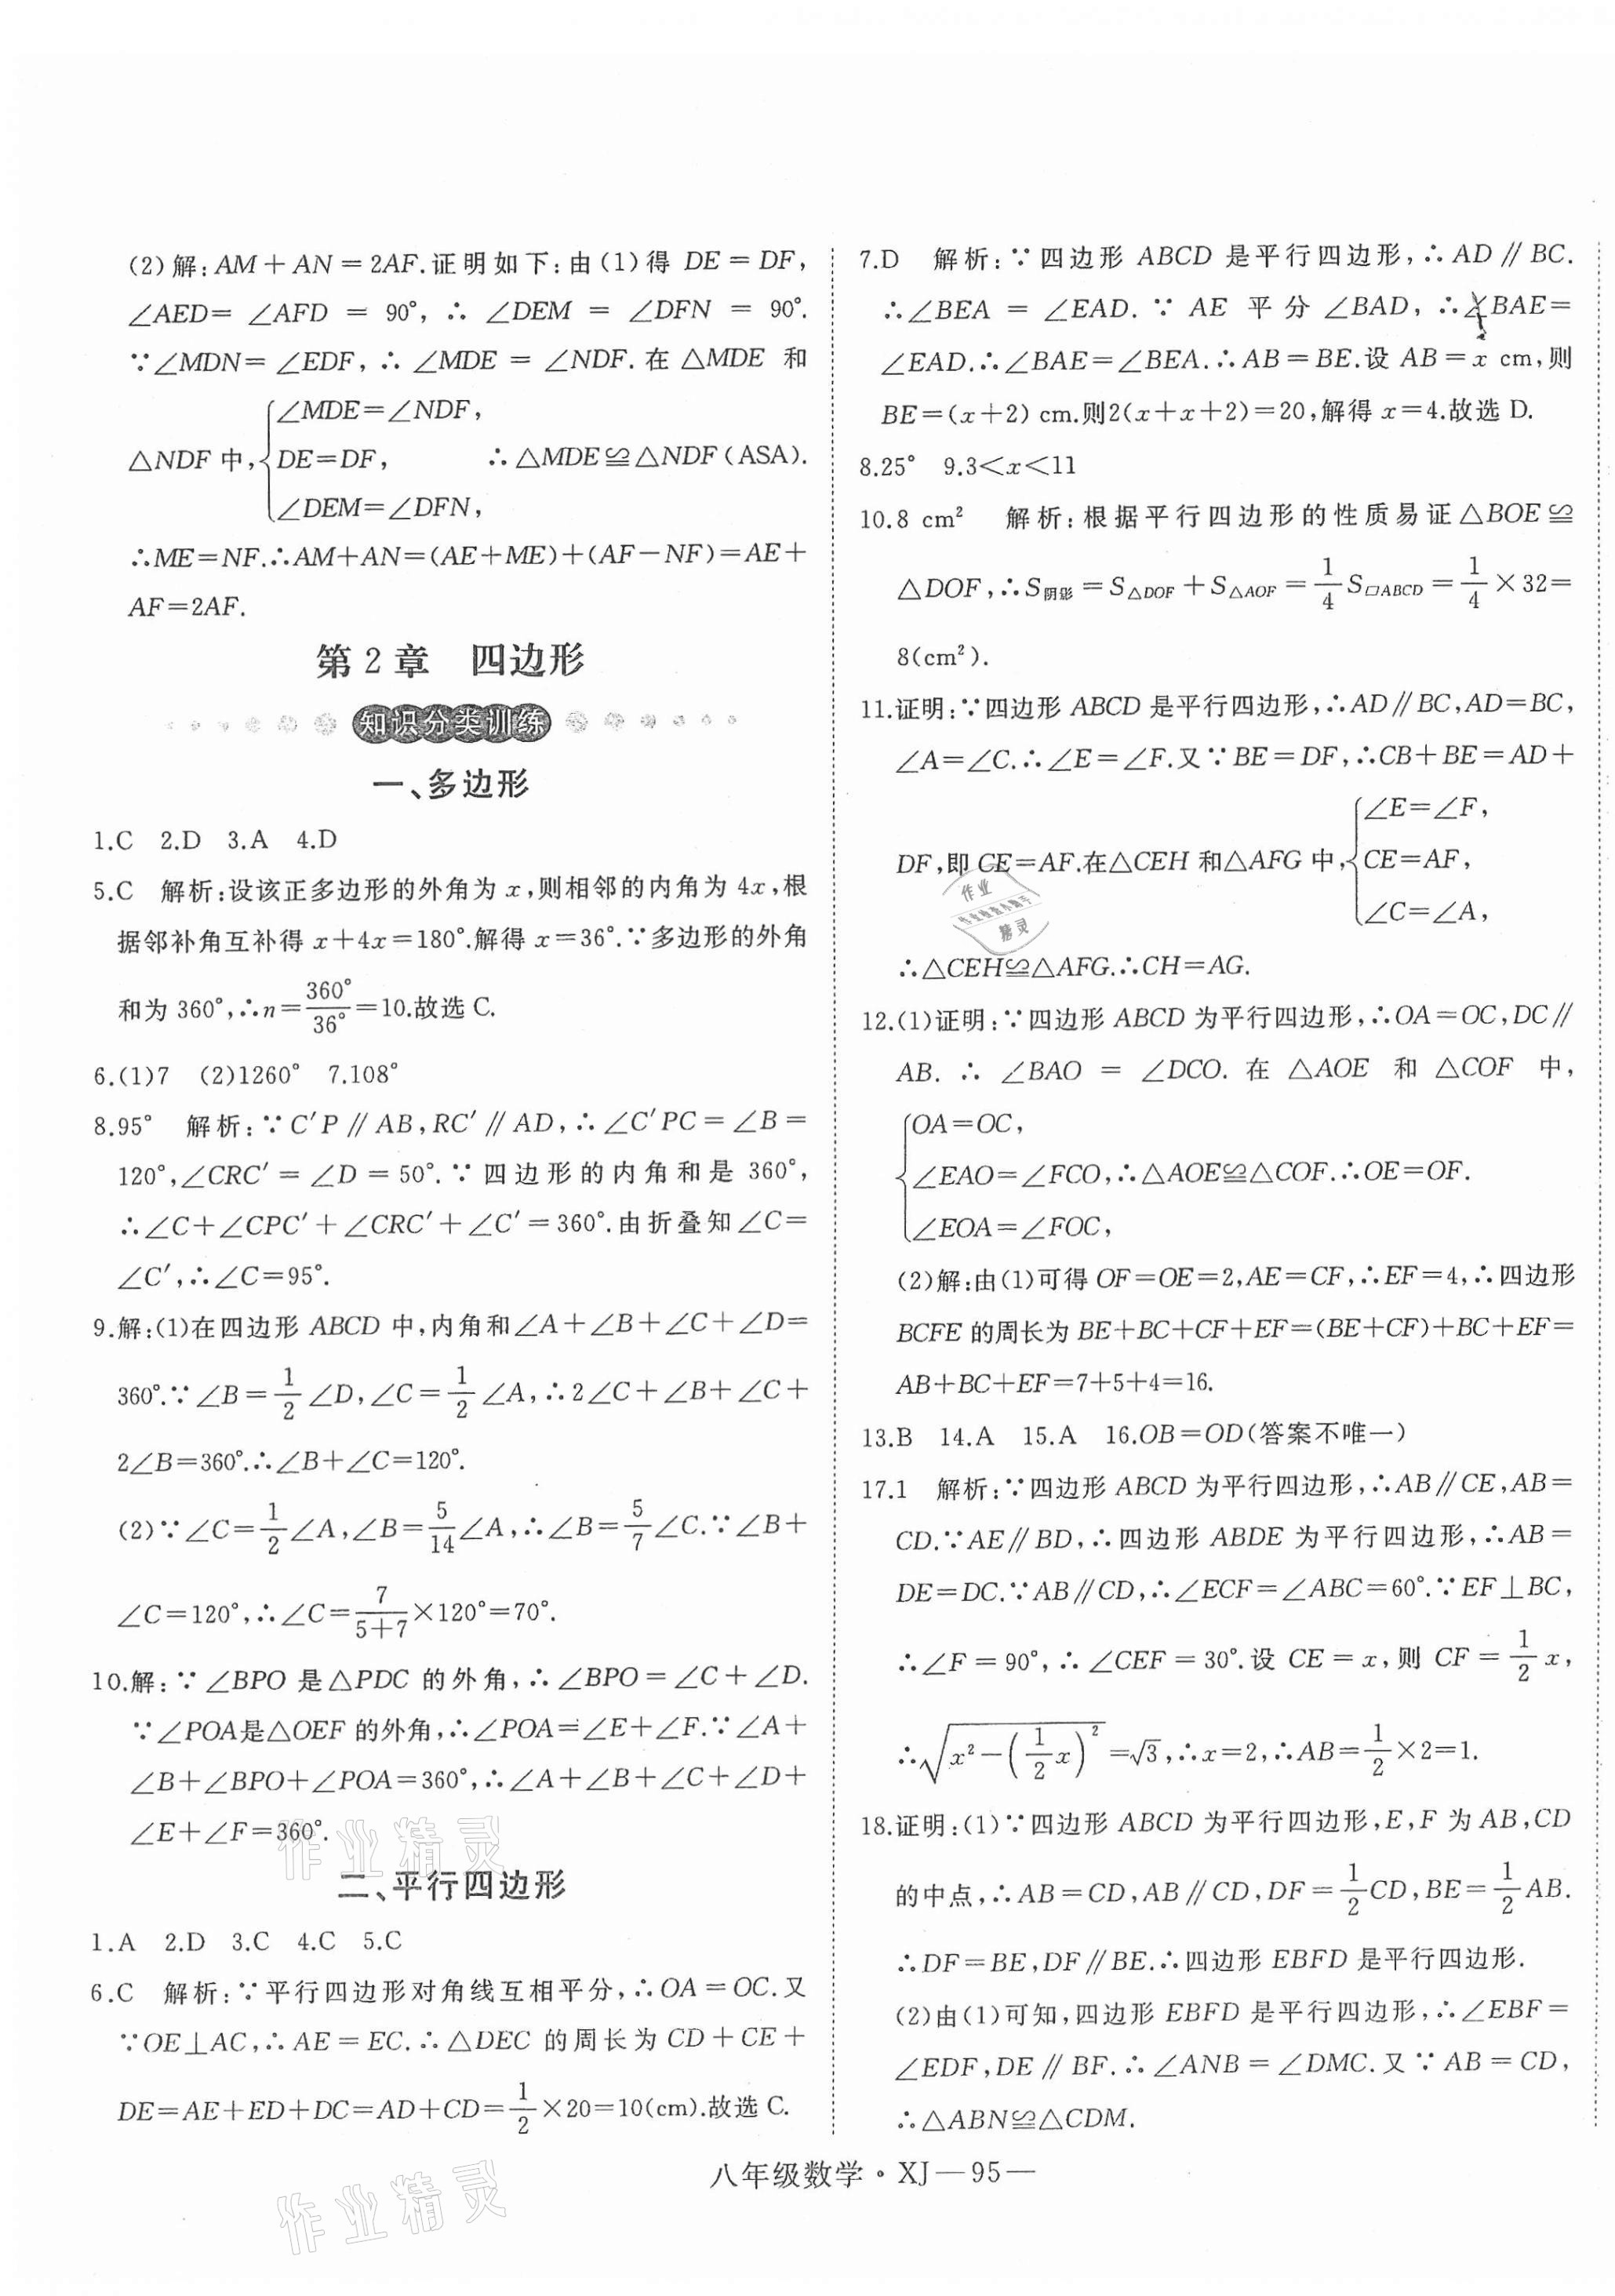 (2)解:AM+AN=2AF.证明如下:由(1)得 DE=DF,
∠AED=∠AFD=90°,∴∠DEM=∠DFN=90°.
∵∠MDN=∠EDF,∴∠MDE=∠NDF.在△MDE 和
△NDF 中,{∠MDE=∠NDF,
DE=DF,
∠DEM=∠DFN,
∴△MDE≌△NDF(ASA).
∴ME=NF.∴AM+AN=(AE+ME)+(AF-NF)=AE+
AF=2AF.
第2章 四边形
知识分类训练
一、多边形
1.C 2.D 3.A 4.D
5.C 解析:设该正多边形的外角为 x,则相邻的内角为 4x,根
据邻补角互补得 x+4x=180°.解得 x=36°.∵多边形的外角
和为 360°,∴n=360°/36°=10.故选 C.
6.(1)7 (2)1260° 7.108°
8.95° 解析:∵C′P∥AB,RC′∥AD,∴∠C′PC=∠B=
120°,∠CRC′=∠D=50°.∵四边形的内角和是 360°,
∴∠C+∠CPC′+∠CRC′+∠C′=360°.由折叠知∠C=
∠C′,∴∠C=95°.
9.解:(1)在四边形 ABCD 中,内角和∠A+∠B+∠C+∠D=
360°.∵∠B=1/2∠D,∠C=1/2∠A,∴2∠C+∠B+∠C+
2∠B=360°.∴∠B+∠C=120°.
(2)∵∠C=1/2∠A,∠B=5/14∠A,∴∠B=5/7∠C.∵∠B+
∠C=120°,∴∠C=7/(5+7)×120°=70°.
10.解:∵∠BPO 是△PDC 的外角,∴∠BPO=∠C+∠D.
∵∠POA是△OEF 的外角,∴∠POA=∠E+∠F.∵∠A+
∠B+∠BPO+∠POA=360°,∴∠A+∠B+∠C+∠D+
∠E+∠F=360°.
作业精灵
二、平行四边形
1.A 2.D 3.C 4.C 5.C
6.C 解析:∵平行四边形对角线互相平分,∴OA=OC.又
∵OE⊥AC,∴AE=EC.∴△DEC 的周长为 CD+CE+
DE=AE+ED+DC=AD+CD=1/2×20=10(cm).故选 C.
7.D 解析:∵四边形 ABCD 是平行四边形,∴AD∥BC.
∴∠BEA=∠EAD.∵AE 平分∠BAD,∴∠BAE=
∠EAD.∴∠BAE=∠BEA.∴AB=BE.设 AB=x cm,则
BE=(x+2) cm.则2(x+x+2)=20,解得 x=4.故选 D.
8.25° 9.3<x<11
10.8 cm² 解析:根据平行四边形的性质易证△BOE≌
△DOF,∴S阴影=S△DOF+S△AOF=1/4S▱ABCD=1/4×32=
8(cm²).
11.证明:∵四边形 ABCD 是平行四边形,∴AD∥BC,AD=BC,
∠A=∠C.∴∠E=∠F.又∵BE=DF,∴CB+BE=AD+
DF,即 CE=AF.在△CEH 和△AFG 中,{∠E=∠F,
CE=AF,
∠C=∠A,
作业
精灵
∴△CEH≌△AFG.∴CH=AG.
12.(1)证明:∵四边形 ABCD 为平行四边形,∴OA=OC,DC∥
AB.∴∠BAO=∠DCO.在△AOE 和△COF 中,
{OA=OC,
∠EAO=∠FCO,∴△AOE≌△COF.∴OE=OF.
∠EOA=∠FOC,
(2)解:由(1)可得 OF=OE=2,AE=CF,∴EF=4,∴四边形
BCFE 的周长为 BE+BC+CF+EF=(BE+CF)+BC+EF=
AB+BC+EF=7+5+4=16.
13.B 14.A 15.A 16.OB=OD(答案不唯一)
17.1 解析:∵四边形 ABCD 为平行四边形,∴AB∥CE,AB=
CD.∵AE∥BD,∴四边形 ABDE 为平行四边形,∴AB=
DE=DC.∵AB∥CD,∴∠ECF=∠ABC=60°.∵EF⊥BC,
∴∠F=90°,∴∠CEF=30°.设 CE=x,则 CF=1/2x,
∴√(x²-(1/2x)²)=√3,∴x=2,∴AB=1/2×2=1.
18.证明:(1)∵四边形 ABCD 为平行四边形,E,F 为 AB,CD
的中点,∴AB=CD,AB∥CD,DF=1/2CD,BE=1/2AB.
∴DF=BE,DF∥BE.∴四边形 EBFD 是平行四边形.
(2)由(1)可知,四边形 EBFD 是平行四边形,∴∠EBF=
∠EDF,DE∥BF.∴∠ANB=∠DMC.又∵AB=CD,
∴△ABN≌△CDM.
八年级数学·XJ—95—
作业精灵